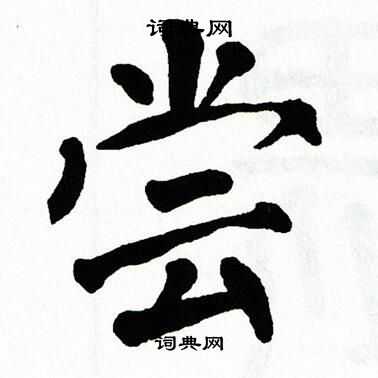 词典网
尝
词典网